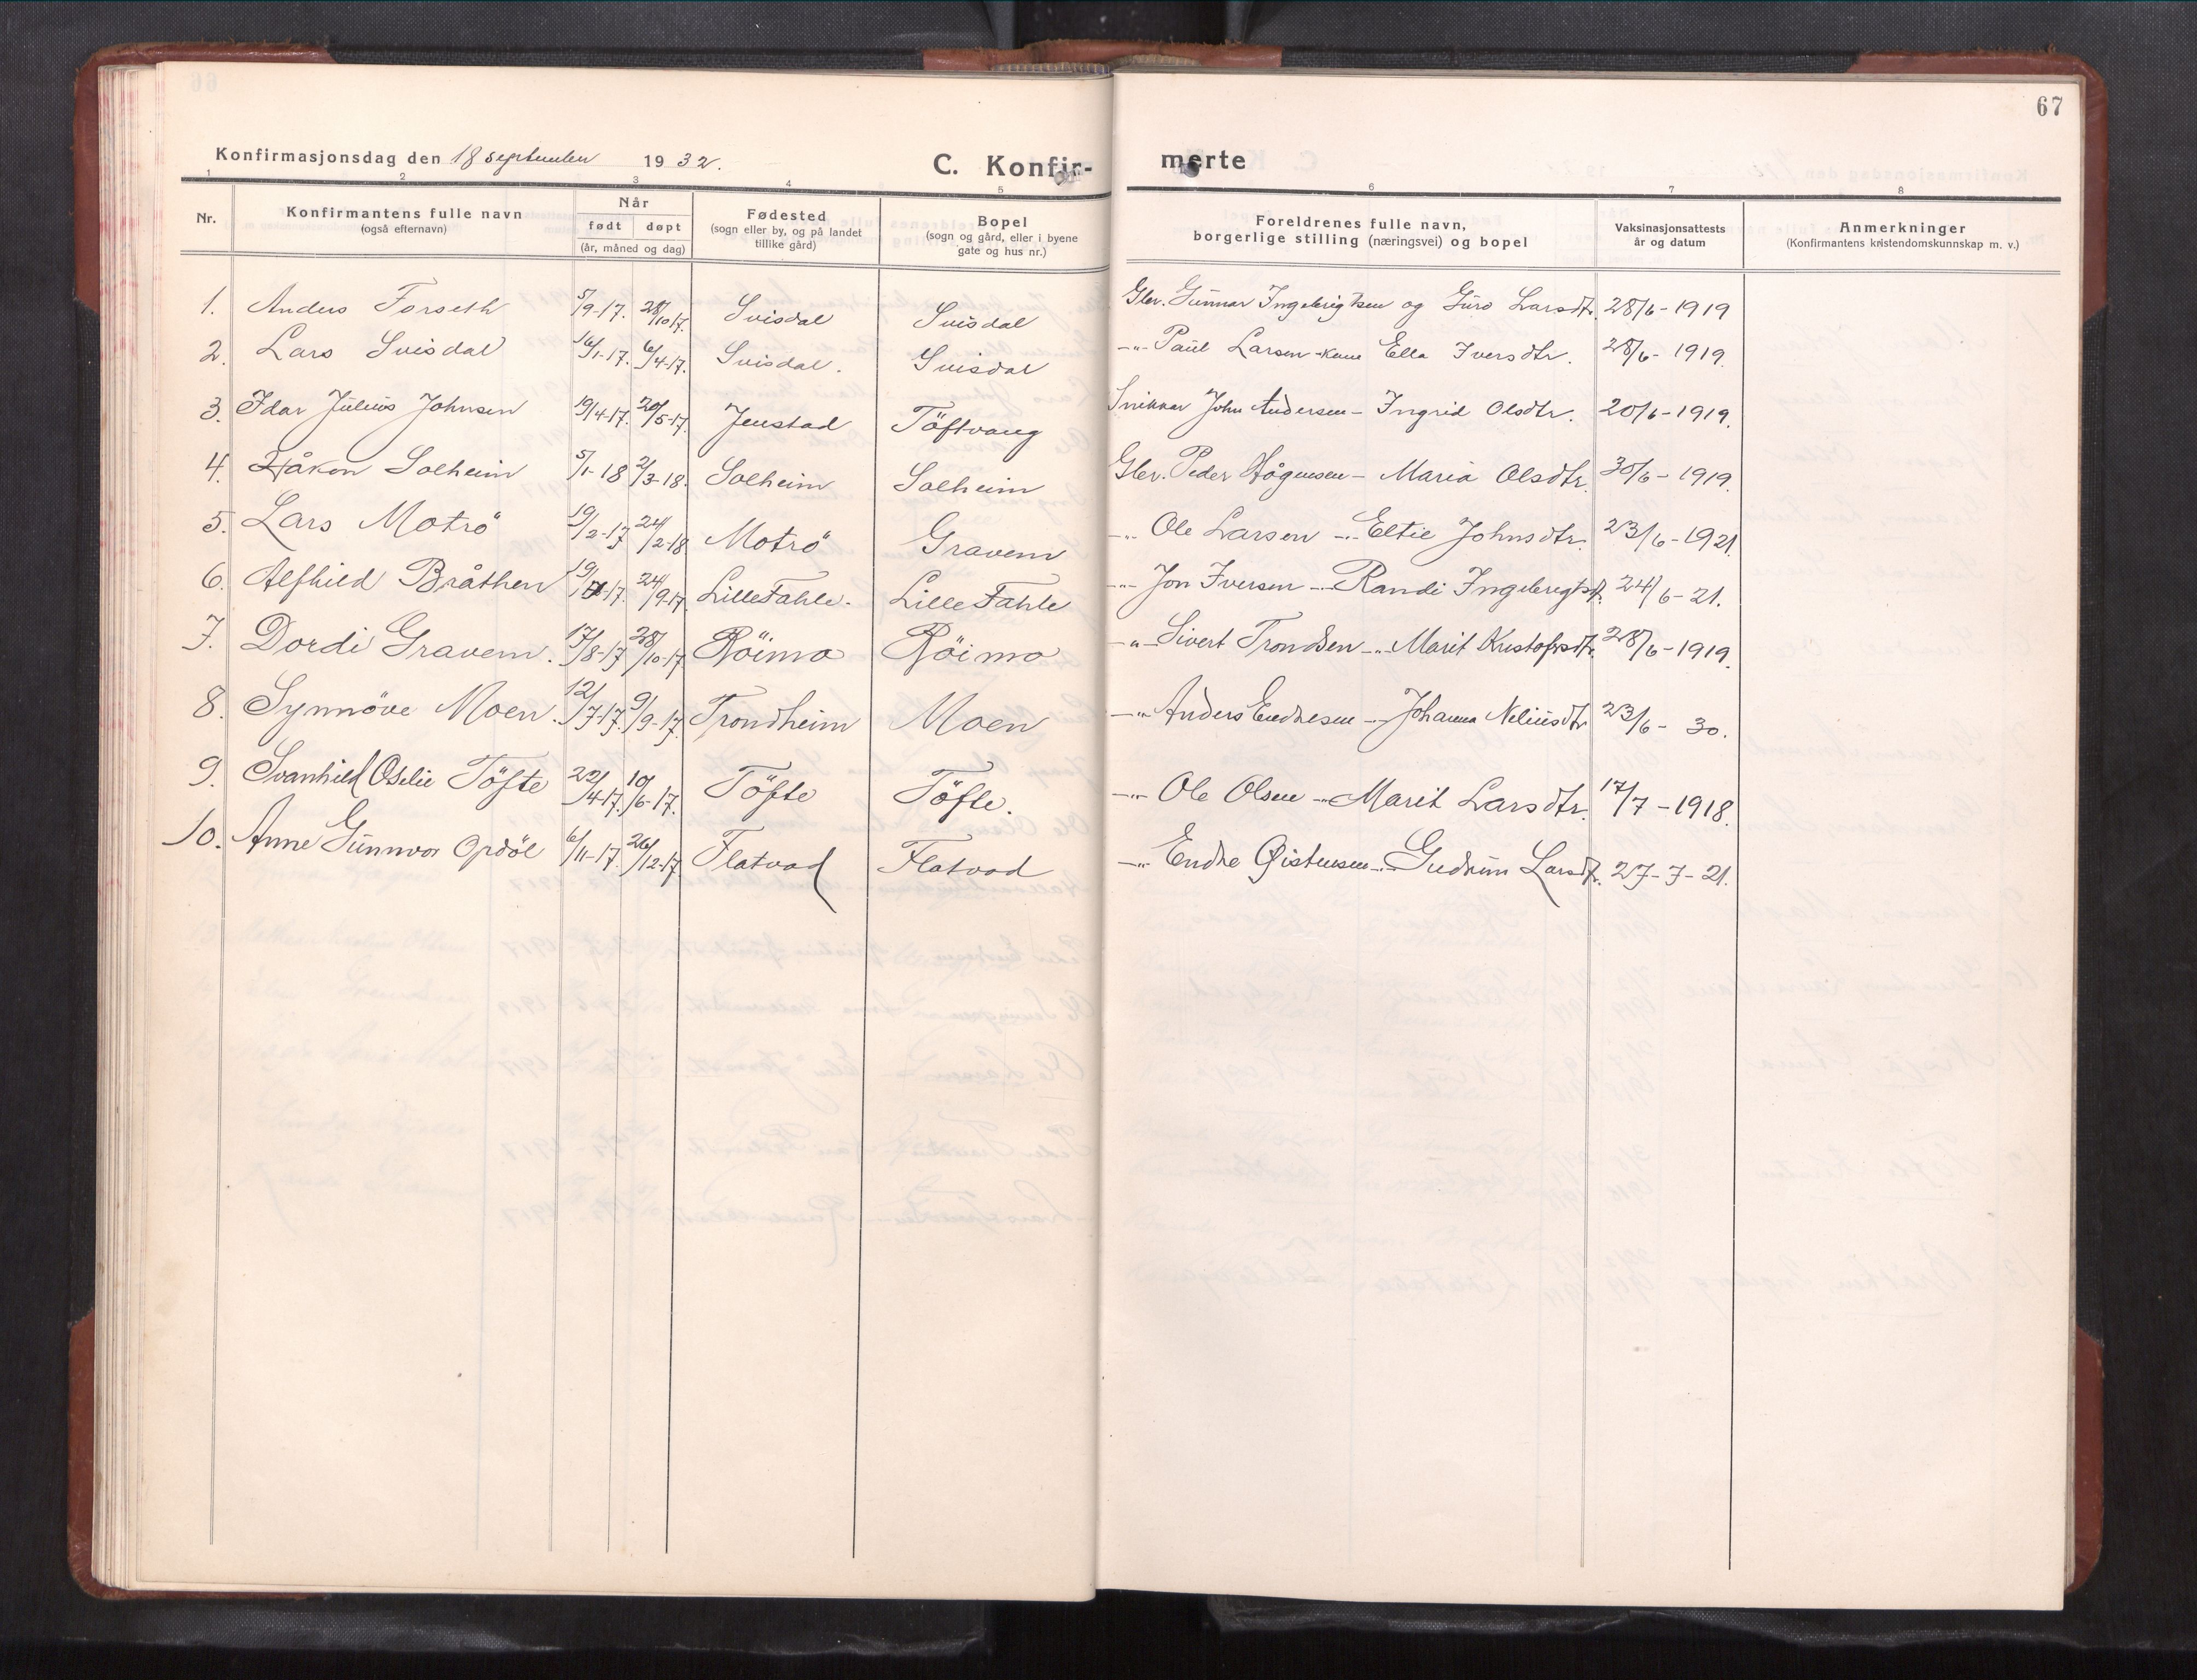 67
Konfirmasjonsdag den 18 september 1932.
C. Konfir- merte
1 2 3 4 5 6 7 8
Nr. Konfirmantens fulle navn (også efternavn) Når født døpt (år, måned og dag) Fødested (sogn eller by, og på landet tillike gård) Bopel (sogn og gård, eller i byene gate og hus nr.) Foreldrenes fulle navn, borgerlige stilling (næringsvei) og bopel Vaksinasjonsattests år og datum Anmerkninger (Konfirmantens kristendomskunnskap m. v.)
1. Anders Forseth 5/9-17. 28/10 17. Svisdal Svisdal Gbr. Gunnar Ingebrigtsen og Guro Larsdtr. 28/6-1919
2. Lars Svisdal 16/1-17. 6/4-17. Svisdal. Svisdal -"- Paul Larsen - kone Ella Iversdtr. 28/6-1919.
3. Idar Julius Johnsen 19/4-17. 20/5-17. Jenstad Töftvang Snikkar John Andersen - Ingrid Olsdtr. 20/6-1919.
4. Håkon Solheim 5/1-18 2/3-18. Solheim Solheim Gbr. Peder Hågensen - Maria Olsdtr. 30/6-1919.
5. Lars Motrö 19/2-17 24/2-18 Motrö Gravem -"- Ole Larsen -"- Eltie Johnsdtr. 23/6-1921.
6. Alfhild Bråthen 24/9-17. Lille Fahle. Lille Fahle -"- Jon Iversen -"- Randi Ingebregtsdtr. 24/6-21.
7. Dordi Gravem. 17/8-17 28/10-17 Röimo Röimo -"- Sivert Trondsen -"- Marit Kristofersdtr. 28/6-1919.
8. Synnöve Moen. 12/7-17. 9/9-17. Trondheim Moen -"- Anders Endresen -"- Johanna Neliusdtr 23/6-30.
9. Svanhild Oselie Töfte 22/4-17. 10/6-17. Töfte Töfte. -"- Ole Olsen -"- Marit Larsdtr. 17/7-1918.
10. Anne Gunnvor Opdöl 6/11-17. 26/12-17 Flatvad Flatvad -"- Endre Øistensen -"- Gudrun Larsdtr. 27-7-21.